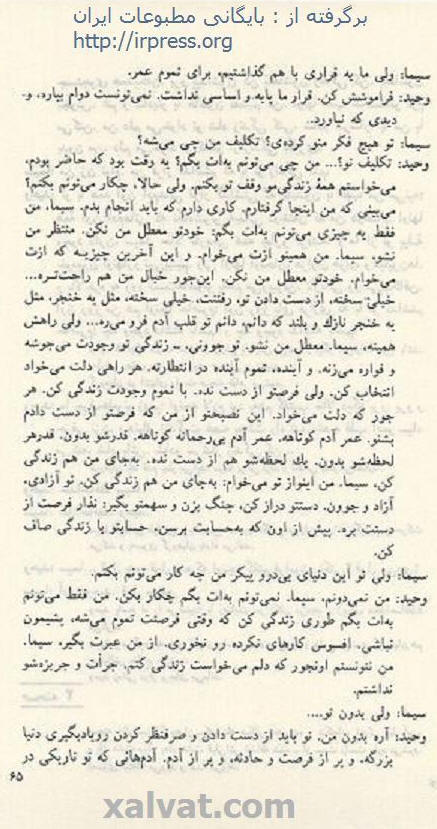 برگرفته از : بایگانی مطبوعات ایران
http://irpress.org
سیما: ولی ما یه قراری با هم گذاشتیم، برای تموم عمر.
وحید: فراموشش کن. قرار ما پایه و اساسی نداشت. نمی‌تونست دوام بیاره، و-
دیدی که نیاورد.
سیما: تو هیچ فکر منو کرده‌ی؟ تکلیف من چی می‌شه؟
وحید: تکلیف تو؟... من چی می‌تونم به‌ات بگم؟ یه وقت بود که حاضر بودم،
می‌خواستم همهٔ زندگی‌مو وقف تو بکنم. ولی حالا، چکار می‌تونم بکنم؟
می‌بینی که من اینجا گرفتارم. کاری دارم که باید انجام بدم. سیما، من
فقط یه چیزی می‌تونم به‌ات بگم: خودتو معطل من نکن. منتظر من
نشو، سیما. من همینو ازت می‌خوام. و این آخرین چیزیه که ازت
می‌خوام. خودتو معطل من نکن. این‌جور خیال من هم راحت‌تره...
خیلی سخته، از دست دادن تو، رفتنت، خیلی سخته، مثل یه خنجر، مثل
یه خنجر نازك و بلند که دائم، دائم تو قلب آدم فرو می‌ره... ولی راهش
همینه، سیما. معطل من نشو. تو جوونی. ــ زندگی تو وجودت می‌جوشه
و فواره می‌زنه. و آینده، تموم آینده در انتظارته. هر راهی دلت می‌خواد
انتخاب کن. ولی فرصتو از دست نده. با تموم وجودت زندگی کن. هر
جور که دلت می‌خواد. این نصیحتو از من که فرصتو از دست دادم
بشنو. عمر آدم کوتاهه. عمر آدم بی‌رحمانه کوتاهه. قدرشو بدون. قدرهر
لحظه‌شو بدون. یك لحظه‌شو هم از دست نده. به‌جای من هم زندگی
کن، سیما. من اینواز تو می‌خوام: به‌جای من هم زندگی کن. تو آزادی،
آزاد و جوون. دستتو دراز کن، چنگ بزن و سهمتو بگیر: نذار فرصت از
دستت بره. پیش از اون که به‌حسابت برسن، حسابتو با زندگی صاف
کن.
سیما: ولی تو این دنیای بی‌درو پیکر من چه کار می‌تونم بکنم.
وحید: من نمی‌دونم، سیما. نمی‌تونم به‌ات بگم چکار بکن. من فقط می‌تونم
به‌ات بگم طوری زندگی کن که وقتی فرصتت تموم می‌شه، پشیمون
نباشی. افسوس کارهای نکرده رو نخوری. از من عبرت بگیر، سیما.
من نتونستم اونجور که دلم می‌خواست زندگی کنم. جرأت و جربزه‌شو
نداشتم.
سیما: ولی بدون تو....
وحید: آره بدون من. تو باید از دست دادن و صرفنظر کردن رویادبگیری دنیا
بزرگه. و پر از فرصت و حادثه، و پر از آدم. آدم‌هائی که تو تاریکی در
۶۵
xalvat.com